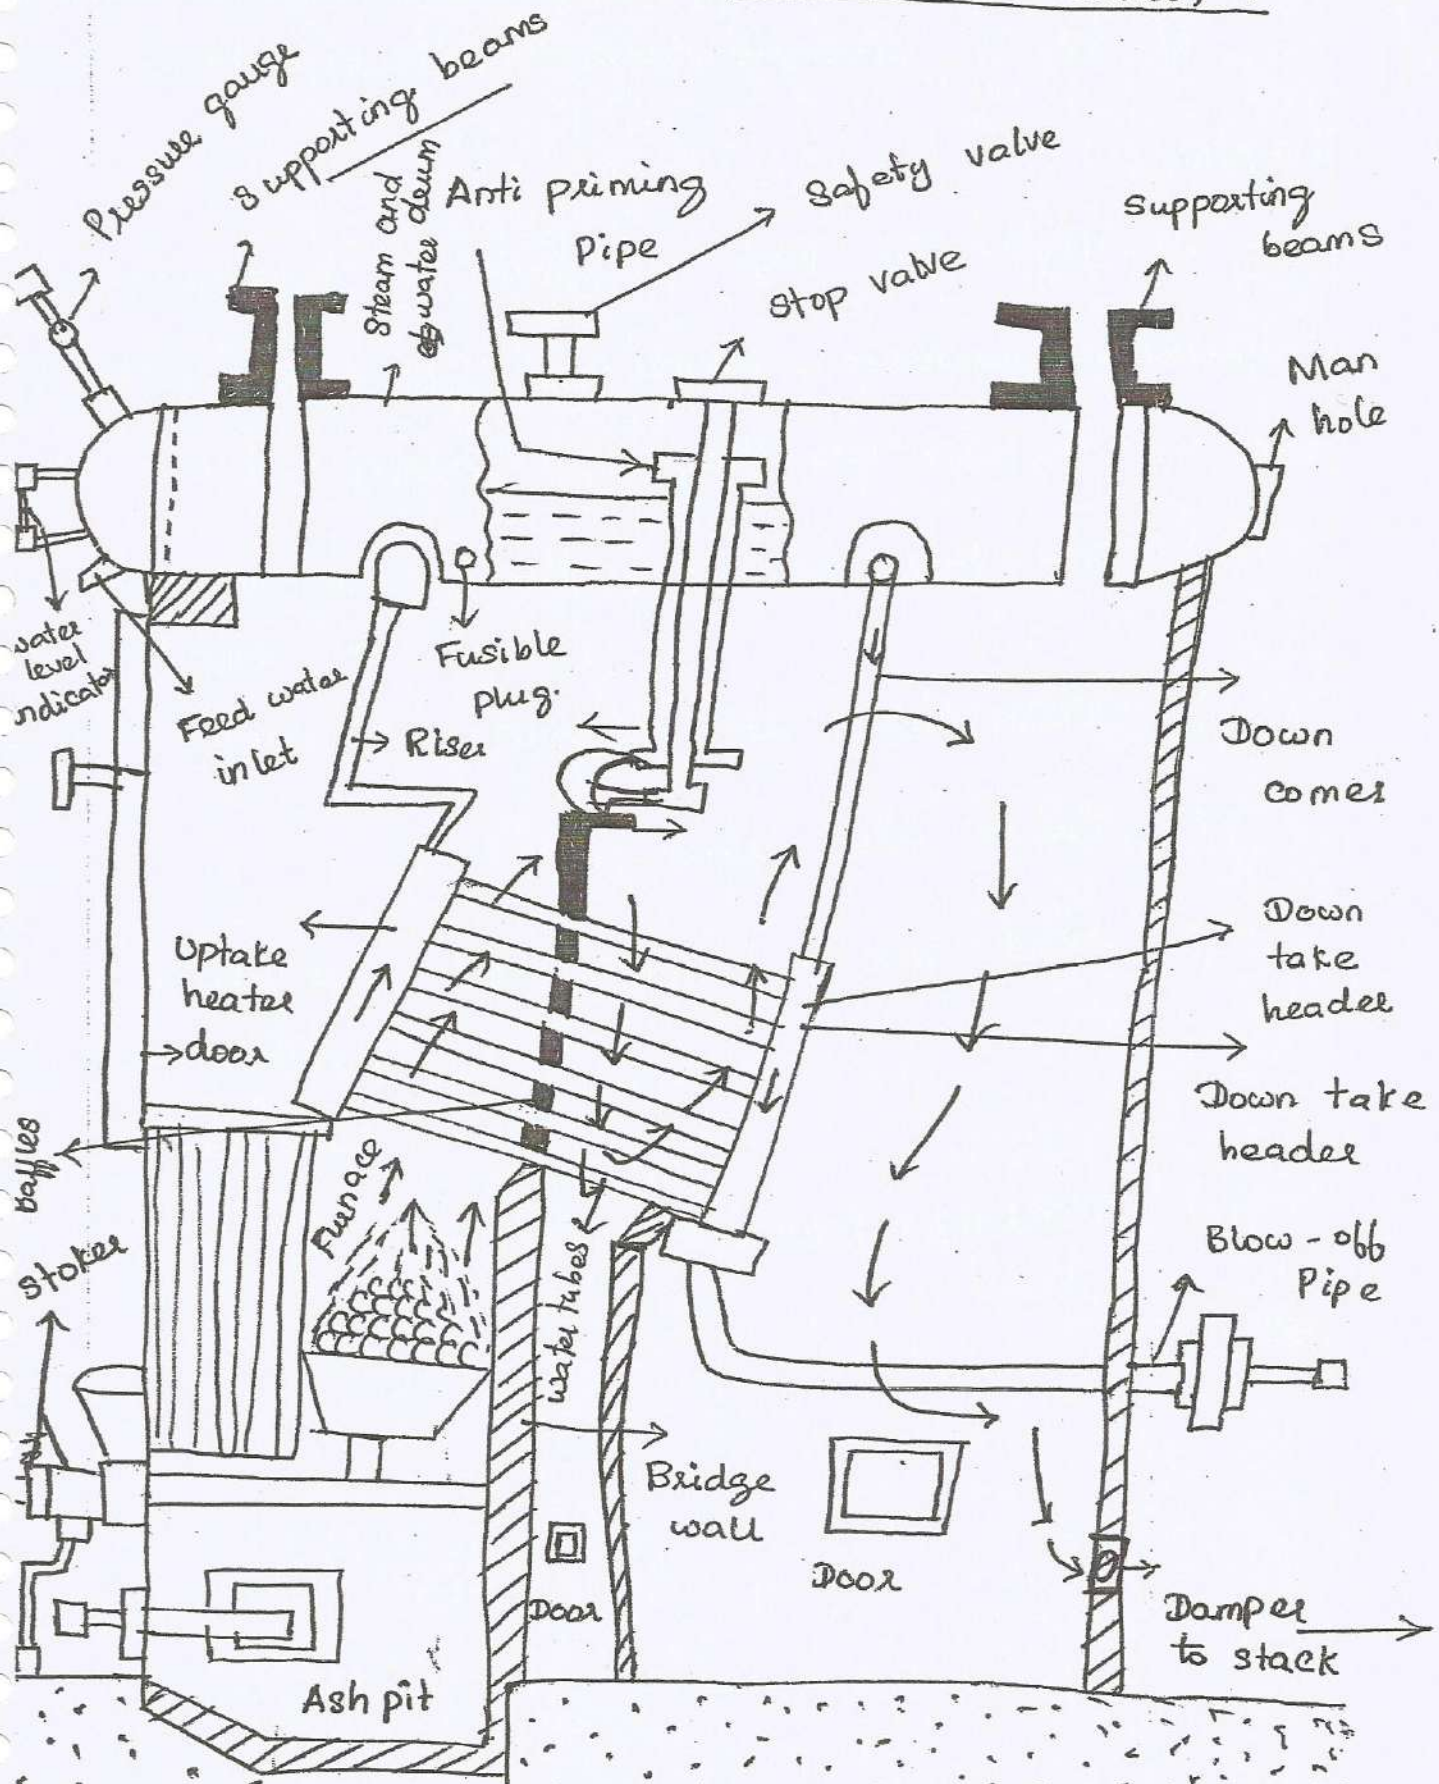 Pressure gauge
Supporting beams
Steam and
water drum
Anti priming
Pipe
Safety valve
stop valve
Supporting
beams
Man
hole
water
level
indicator
Feed water
inlet
Fusible
plug.
Riser
Down
comer
Uptake
heater
door
Down
take
header
Down take
header
baffles
Furnace
Stoker
water tubes
Blow-off
Pipe
Bridge
wall
Door
Door
Damper
to stack
Ash pit